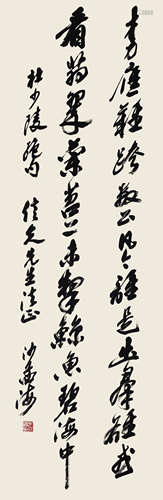 才力應難跨數公凡今誰是出羣雄或
看翡翠蘭苕上未掣鯨魚碧海中
杜少陵絕句 先生法正 沙孟海